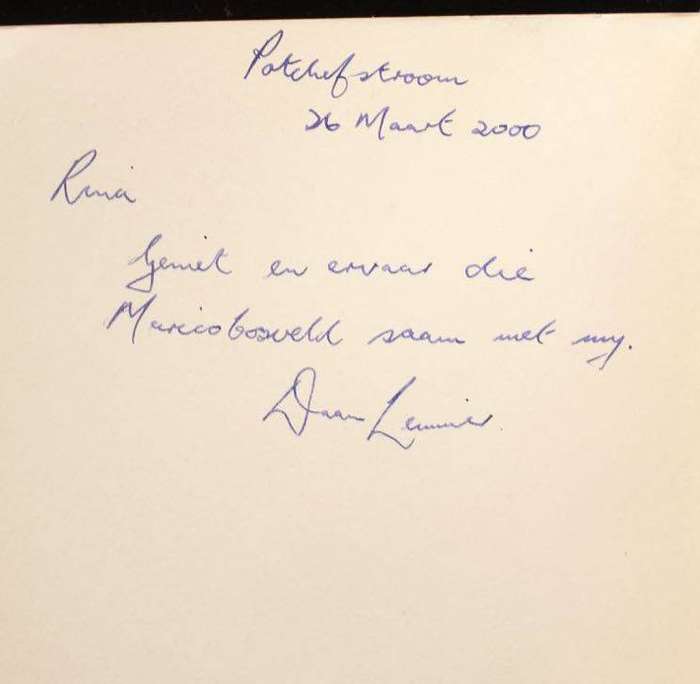 Potchefstroom
26 Maart 2000
Rina
Geniet en ervaar die
Maricobosveld saam met my.
Daan